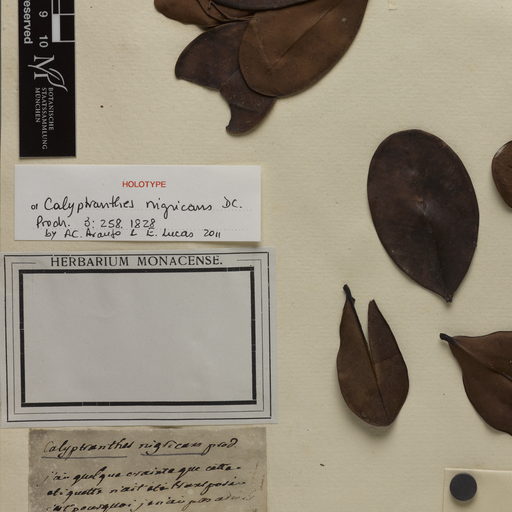 served
9 10
BOTANISCHE
STAATSSAMMLUNG
MÜNCHEN
HOLOTYPE
of Calyptranthes nigricans DC.
Prodr. 3: 258. 1828
by A.C. Araujo & E. Lucas 2011
HERBARIUM MONACENSE.
Calyptranthes nigricans prod
j'ai quelque crainte que cette
etiquette n'ait été transposée
c'est pourquoi je n'ai pas